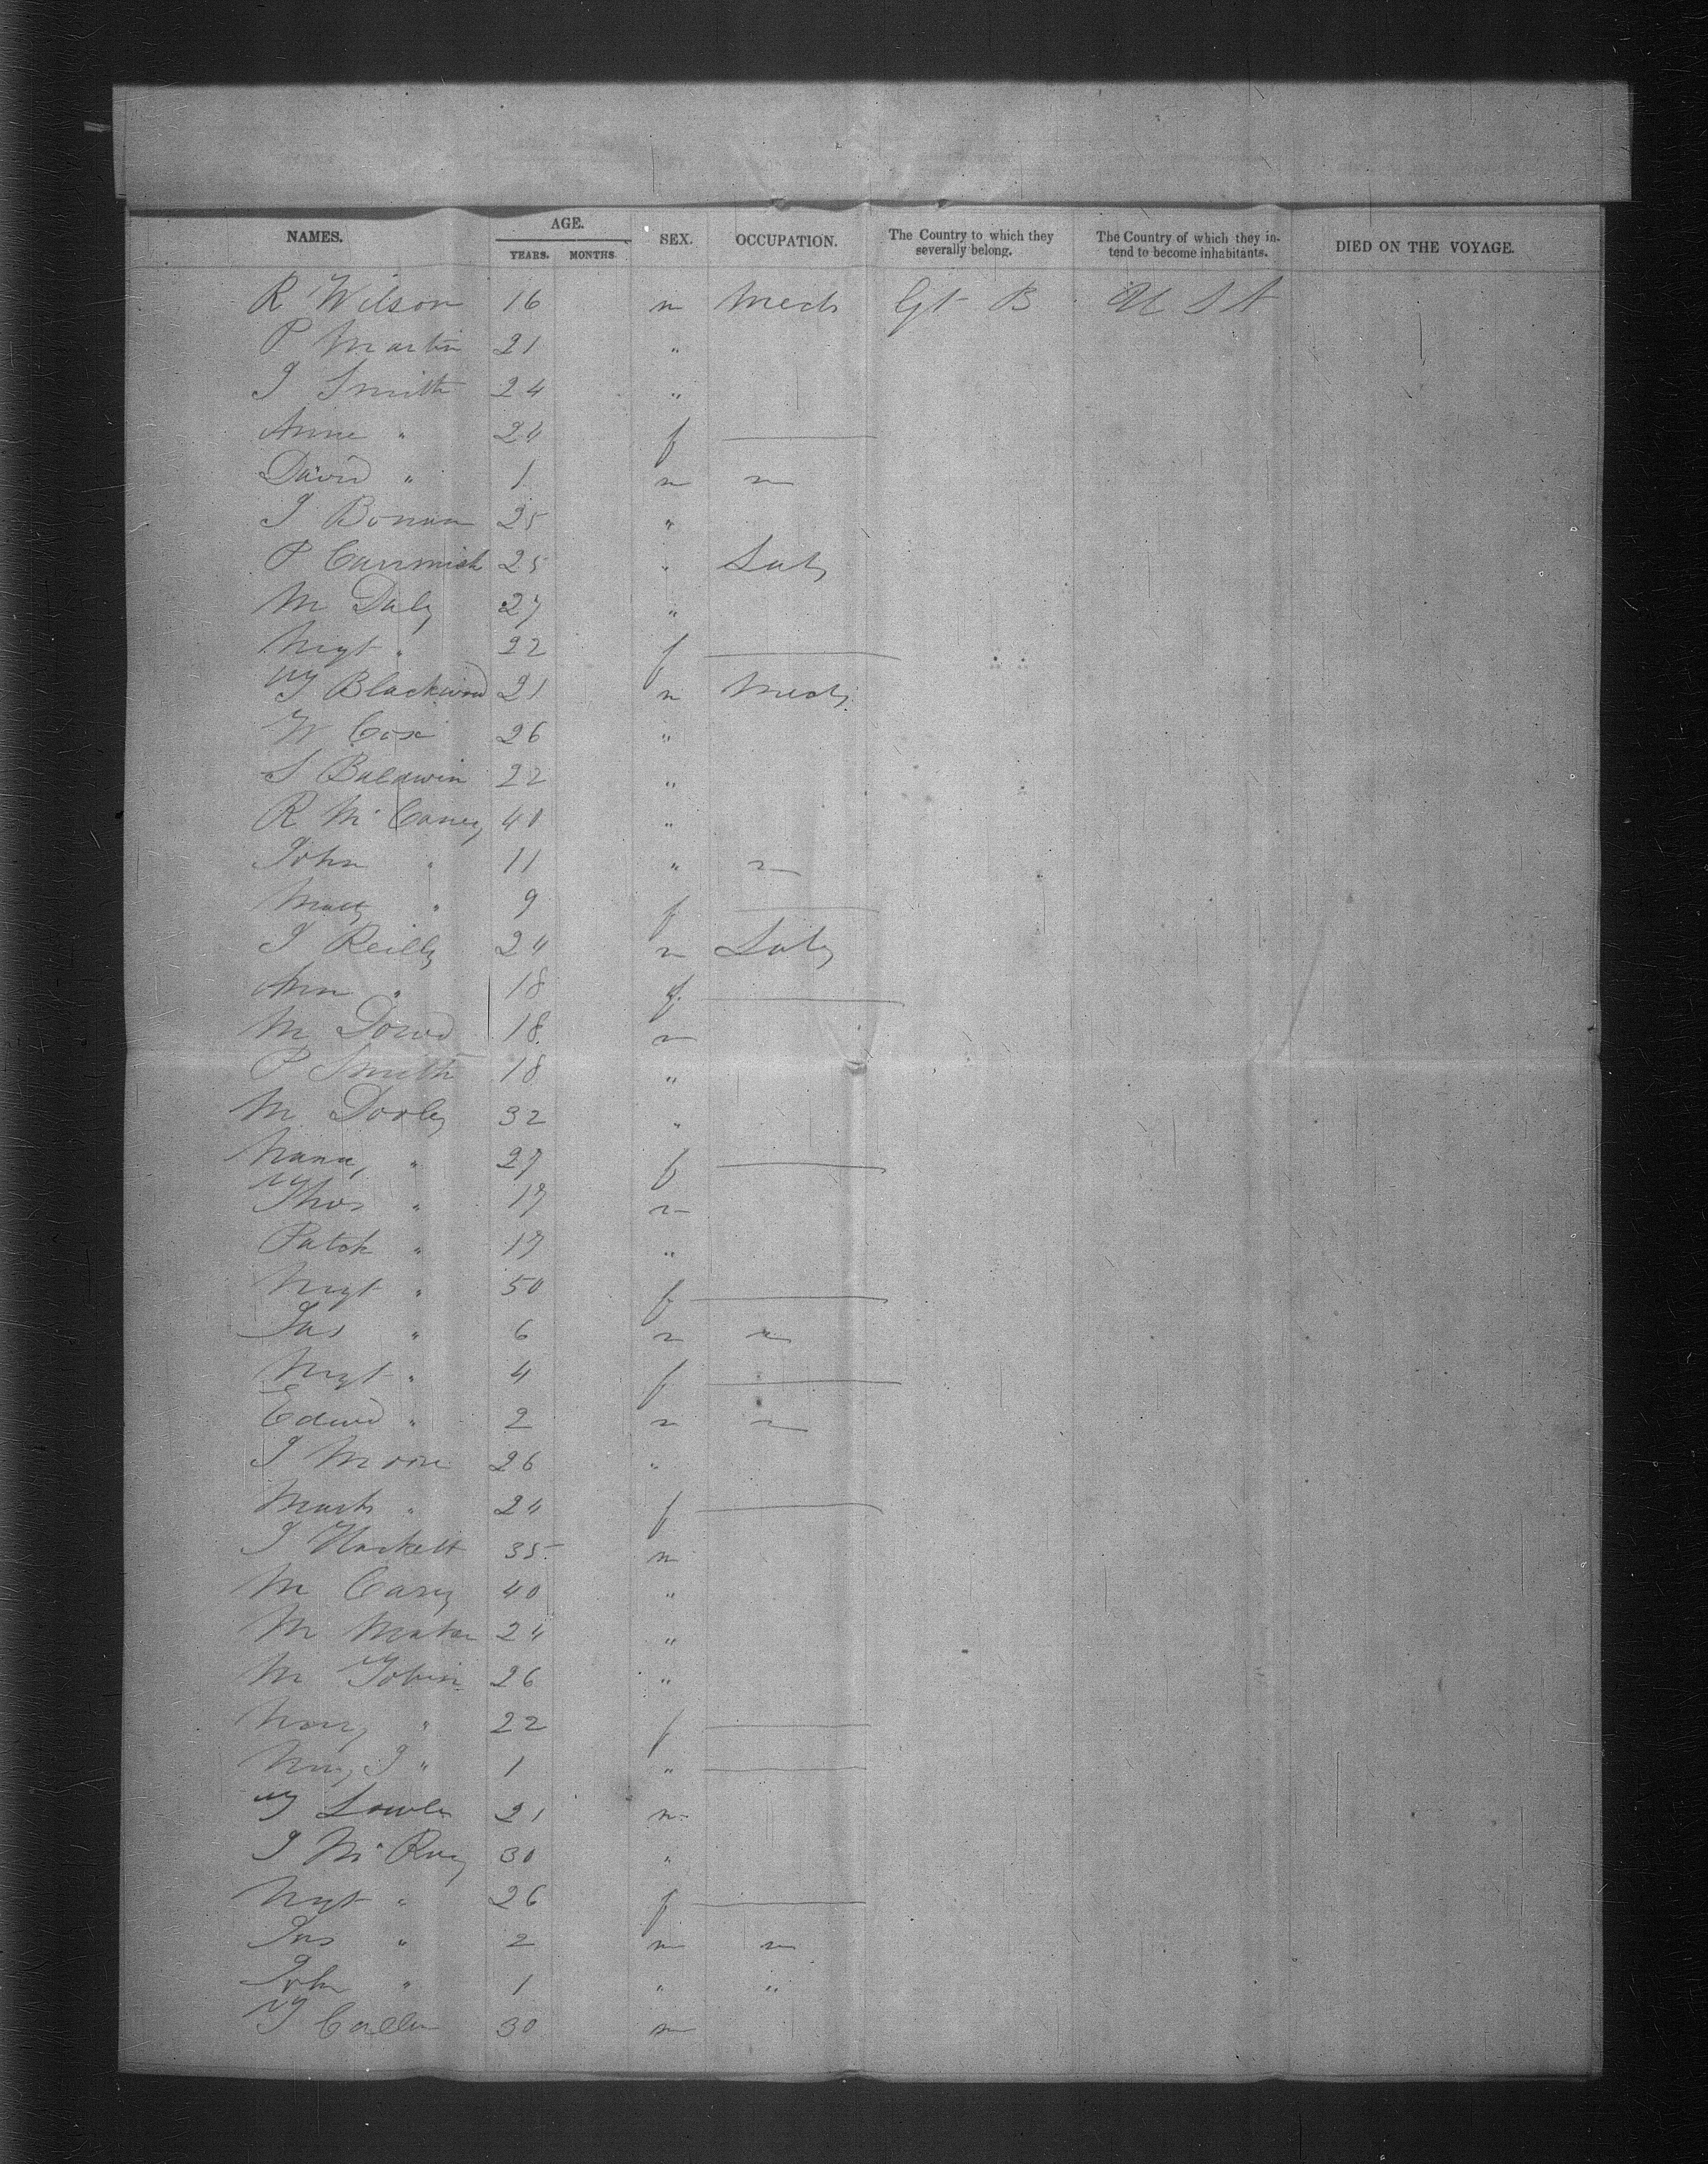 NAMES. AGE. SEX. OCCUPATION. The Country to which they severally belong. The Country of which they intend to become inhabitants. DIED ON THE VOYAGE.
YEARS. MONTHS.
R Wilson 16 m Mech Gt B U S A
P Martin 21 "
J Smith 24 "
Anne " 24 f
David " 1 m
J 25 "
P 25 " Lab
M Daly 27 "
Mgt " 22 f
T Blackwood 21 m Mech
W Cox 26 "
S Baldwin 22 "
R Mc 40 "
John " 11 "
" 9 f
J Reilly 24 m Lab
Ann " 18 f
M Dowd 18 m
P Smith 18 "
M Dooley 32 "
" 27 f
Thos " 17 m
Patck " 17 "
Mgt " 50 f
Jas " 6 m
Mgt " 4 f
Edwd " 2 m
J Moore 26 "
" 24 f
J Hackett 35 m
M Carey 40 "
M 24 "
M Tobin 26 "
Mary " 22 f
Mary J " 1 "
T 21 m
J Mc 30 "
Mgt " 26 f
Jas " 2 m
John " 1 " "
T 30 m